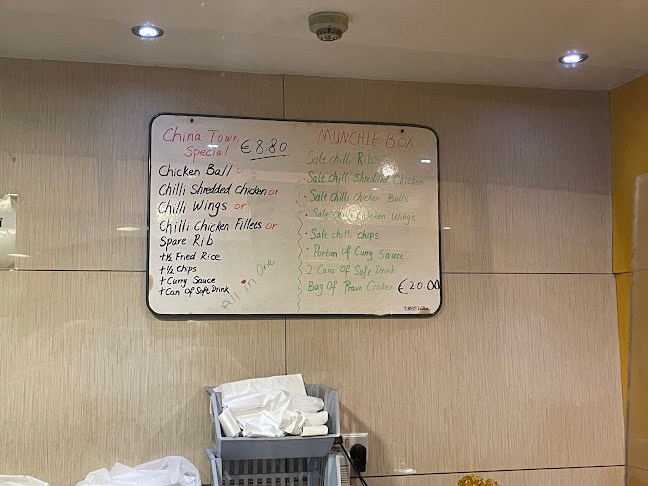 China Town
Special € 8.80
Chicken Ball or
Chilli Shredded Chicken or
Chilli Wings or
Chilli Chicken Fillets or
Spare Rib
+½ Fried Rice
+½ Chips
+ Curry Sauce
+ Can Of Soft Drink
All in One
MUNCHIE BOX
Salt chilli Ribs
• Salt chilli Shredded Chicken
• Salt chilli chicken Balls
• Salt chilli Chicken Wings
• Salt chilli chips
• Portion of Curry Sauce
2 Cans Of Soft Drink
Bag Of Prawn Craker €20.00